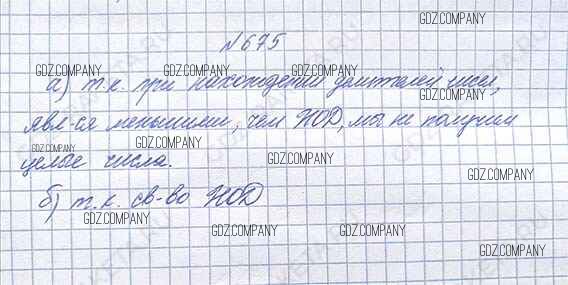 №675
а) т.к. при нахождении делителей чисел,
явл-ся меньшими, чем НОД, мы не получим
целые числа.
б) т.к. св-во НОД
GDZ.COMPANY
GDZ.COMPANY
GDZ.COMPANY
GDZ.COMPANY
GDZ.COMPANY
GDZ.COMPANY
GDZ.COMPANY
GDZ.COMPANY
GDZ.COMPANY
GDZ.COMPANY
GDZ.COMPANY
GDZ.COMPANY